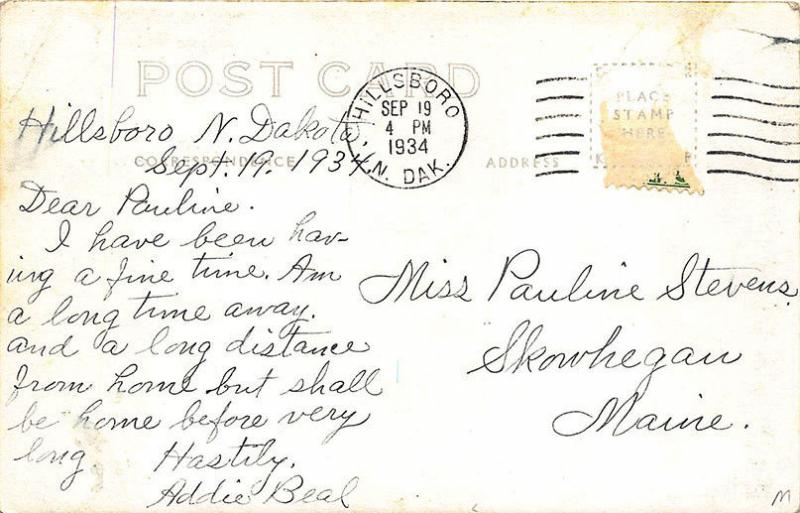 POST CARD
HILLSBORO
SEP 19
4 PM
1934
N. DAK.
PLACE
STAMP
HERE
CORRESPONDENCE
ADDRESS
Hillsboro N. Dakota,
Sept. 19. 1934.
Dear Pauline.
I have been hav-
ing a fine time. Am
a long time away.
and a long distance
from home but shall
be home before very
long.
Hastily.
Addie Beal
Miss Pauline Stevens.
Skowhegan
Maine.
M